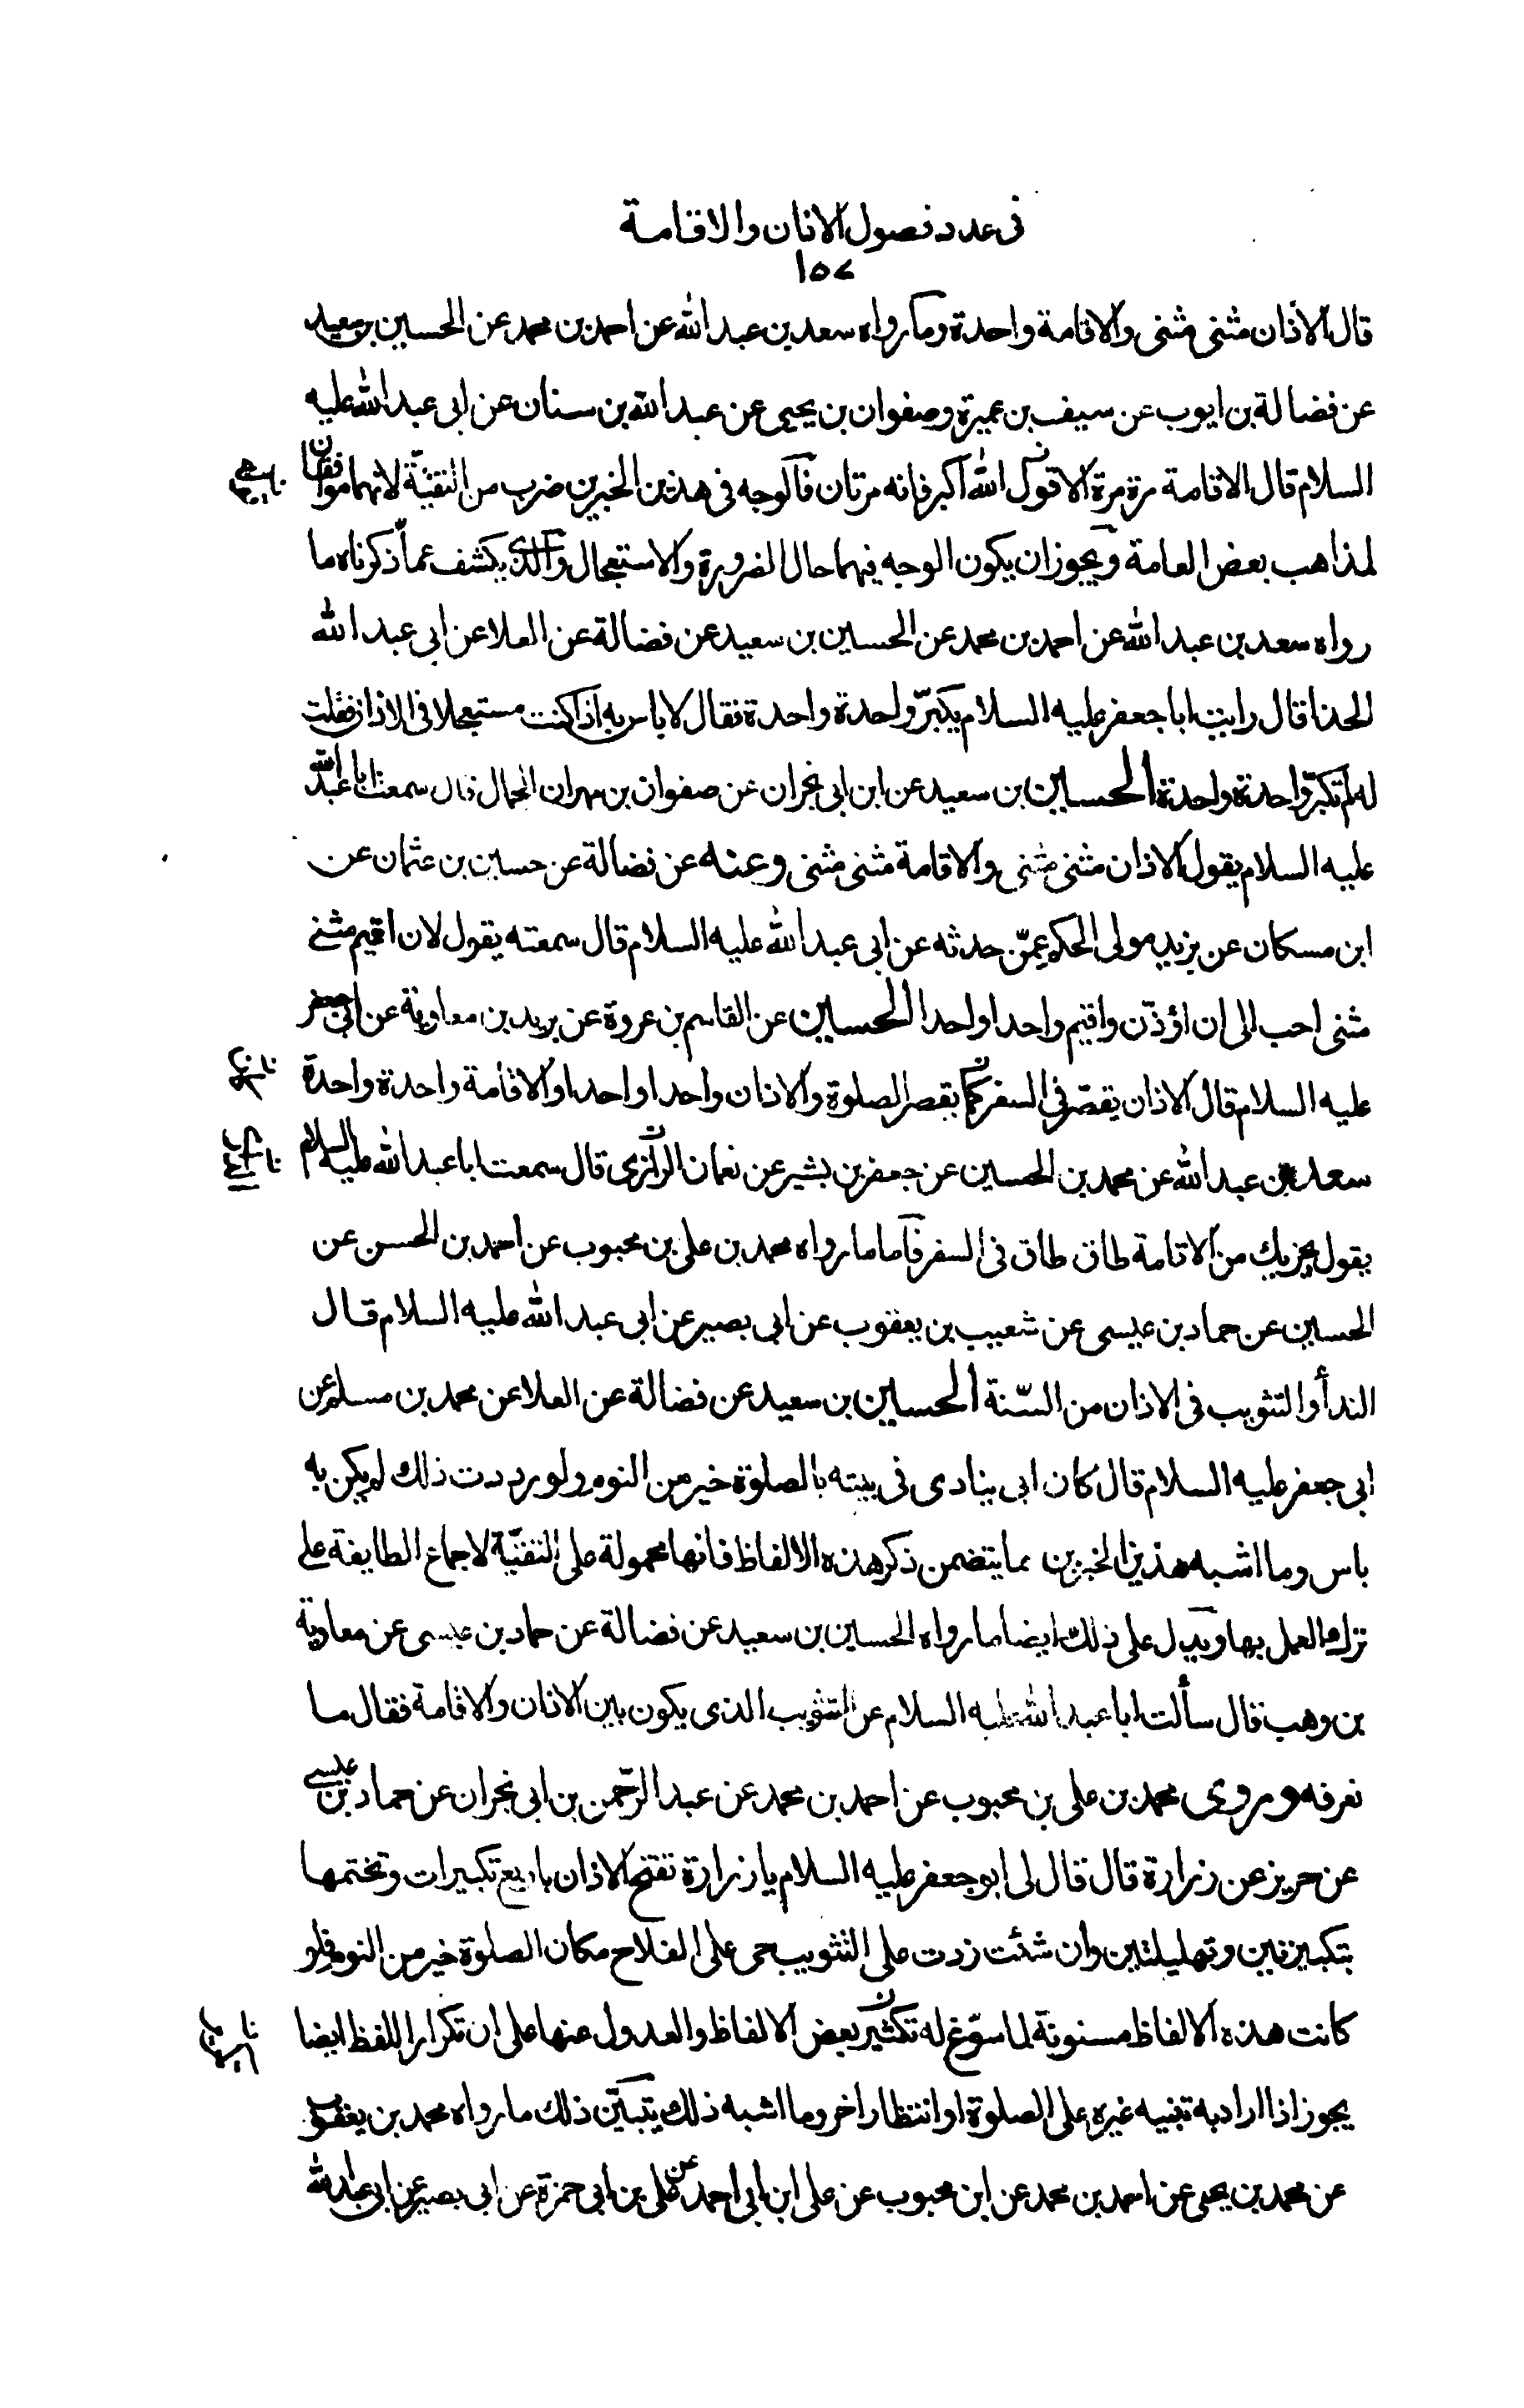 فى عدد فصول الاذان والاقامة
١٥٧
قال الاذان مثنى مثنى والاقامة واحدة وما رواه سعد بن عبد الله عن احمد بن محمد عن الحسين بن سعيد
عن فضالة بن ايوب عن سيف بن عميرة وصفوان بن يحيى عن عبد الله بن سنان عن ابى عبد الله عليه
السلام قال الاقامة مرة مرة الا قول الله اكبر فانه مرتان فالوجه فى هذين الخبرين ضرب من التقيّة لانهما موافقان
لمذاهب بعض العامة ويجوز ان يكون الوجه فيهما حال الضرورة والاستعجال والذى يكشف عمّا ذكرناه ما
رواه سعد بن عبد الله عن احمد بن محمد عن الحسين بن سعيد عن فضالة عن العلا عن ابى عبد الله
الحذا قال رايت ابا جعفر عليه السلام يكبّر واحدة واحدة فقال لا باس به اذا كنت مستعجلا فى الاذان فقلت
له لم تكبّر واحدة واحدة الحسين بن سعيد عن ابن ابى نجران عن صفوان بن مهران الجمال قال سمعت ابا عبد الله
عليه السلام يقول الاذان مثنى مثنى والاقامة مثنى مثنى وعنه عن فضالة عن حسين بن عثمان عن
ابن مسكان عن يزيد مولى الحكم عمّن حدثه عن ابى عبد الله عليه السلام قال سمعته يقول لان اقيم مثنى
مثنى احب الى ان اؤذّن واقيم واحدا واحدا الحسين عن القاسم بن عروة عن بريد بن معاوية عن ابى جعفر
عليه السلام قال الاذان يقصّر فى السفر كما يقصر الصلوة والاذان واحدا واحدا والاقامة واحدة واحدة
سعد بن عبد الله عن محمد بن الحسين عن جعفر بن بشير عن نعمان الرازى قال سمعت ابا عبد الله عليه السلام
يقول يجزيك من الاقامة طاق طاق فى السفر فاما ما رواه محمد بن على بن محبوب عن احمد بن الحسن عن
الحسين عن حماد بن عيسى عن شعيب بن يعقوب عن ابى بصير عن ابى عبد الله عليه السلام قال
الندأ والتثويب فى الاذان من السّنة الحسين بن سعيد عن فضالة عن العلا عن محمد بن مسلم عن
ابى جعفر عليه السلام قال كان ابى ينادى فى بيته بالصلوة خير من النوم ولو رددت ذلك لم يكن به
باس وما اشبه هذين الخبرين مما يتضمن ذكر هذه الالفاظ فانها محمولة على التقيّة لاجماع الطايفة على
ترك العمل بها ويدل على ذلك ايضا ما رواه الحسين بن سعيد عن فضالة عن حماد بن عيسى عن معاوية
بن وهب قال سألت ابا عبد الله عليه السلام عن التثويب الذى يكون بين الاذان والاقامة فقال ما
نعرفه وروى محمد بن على بن محبوب عن احمد بن محمد عن عبد الرّحمن بن ابى نجران عن حماد بن عيسى
عن حريز عن زرارة قال قال لى ابو جعفر عليه السلام يا زرارة تفتح الاذان باربع تكبيرات وتختمها
بتكبيرتين وتهليلتين وان شئت زدت على التثويب حى على الفلاح مكان الصلوة خير من النوم فلو
كانت هذه الالفاظ مسنونة لما سوّغ له تكثير بعض الالفاظ والعدول عنها على ان تكرار اللفظ ايضا
يجوز اذا اراد به تنبيه غيره على الصلوة او انتظار اخر وما اشبه ذلك يتبيّن ذلك ما رواه محمد بن يعقوب
عن محمد بن يحيى عن احمد بن محمد عن ابن محبوب عن على ابن ابى احمد عن على بن ابى حمزة عن ابى بصير عن ابى عبد الله